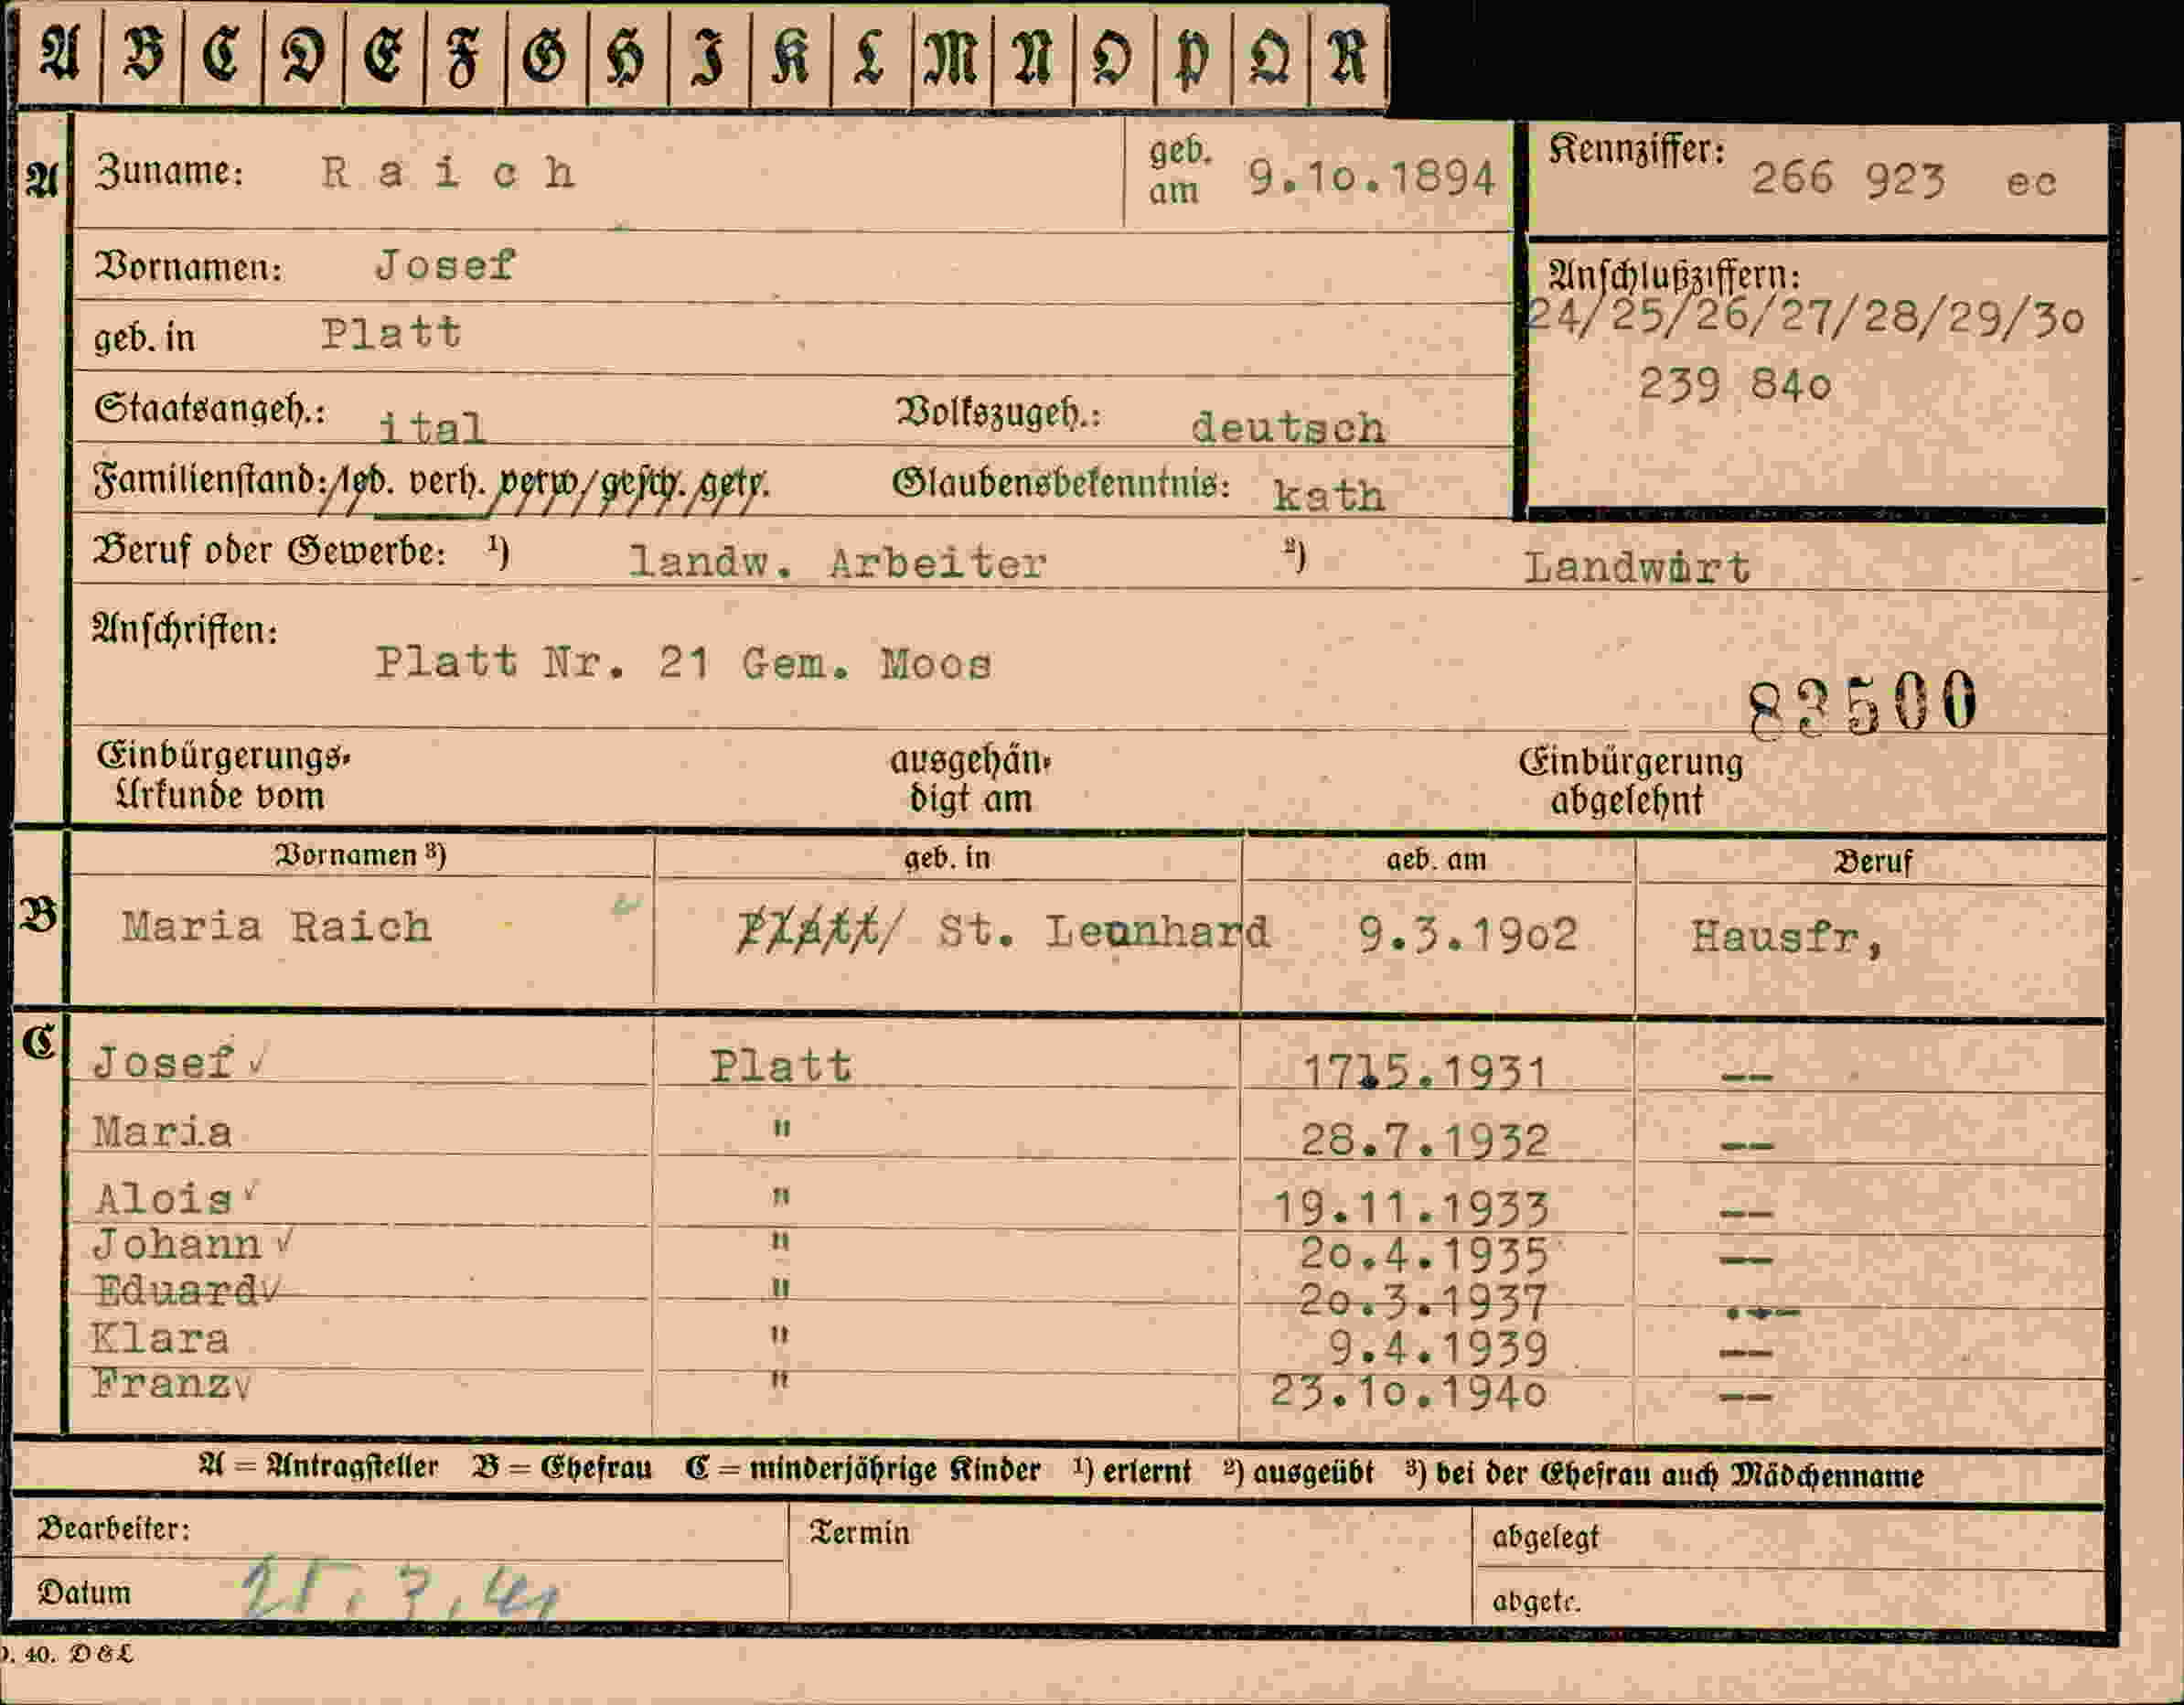 A B C D E F G H I K L M N O P Q R
A Zuname: Raich geb. am 9.10.1894 Kennziffer: 266 923 ec
Vornamen: Josef Anschlußziffern:
geb. in Platt 24/25/26/27/28/29/30
239 840
Staatsangeh.: ital Volkszugeh.: deutsch
Familienstand: led. verh. verw. gesch. getr. Glaubensbekenntnis: kath
Beruf oder Gewerbe: ¹) landw. Arbeiter ²) Landwirt
Anschriften:
Platt Nr. 21 Gem. Moos
83500
Einbürgerungs- ausgehän- Einbürgerung
Urkunde vom digt am abgelehnt
Vornamen ³) geb. in geb. am Beruf
B Maria Raich Platt/ St. Leonhard 9.3.1902 Hausfr,
C Josef ✓ Platt 17.5.1931 --
Maria " 28.7.1932 --
Alois ✓ " 19.11.1933 --
Johann ✓ " 20.4.1935 --
Eduard ✓ " 20.3.1937 --
Klara " 9.4.1939 --
Franz ✓ " 23.10.1940 --
A = Antragsteller B = Ehefrau C = minderjährige Kinder ¹) erlernt ²) ausgeübt ³) bei der Ehefrau auch Mädchenname
Bearbeiter: Termin abgelegt
Datum abgetr.
. 40. D & L